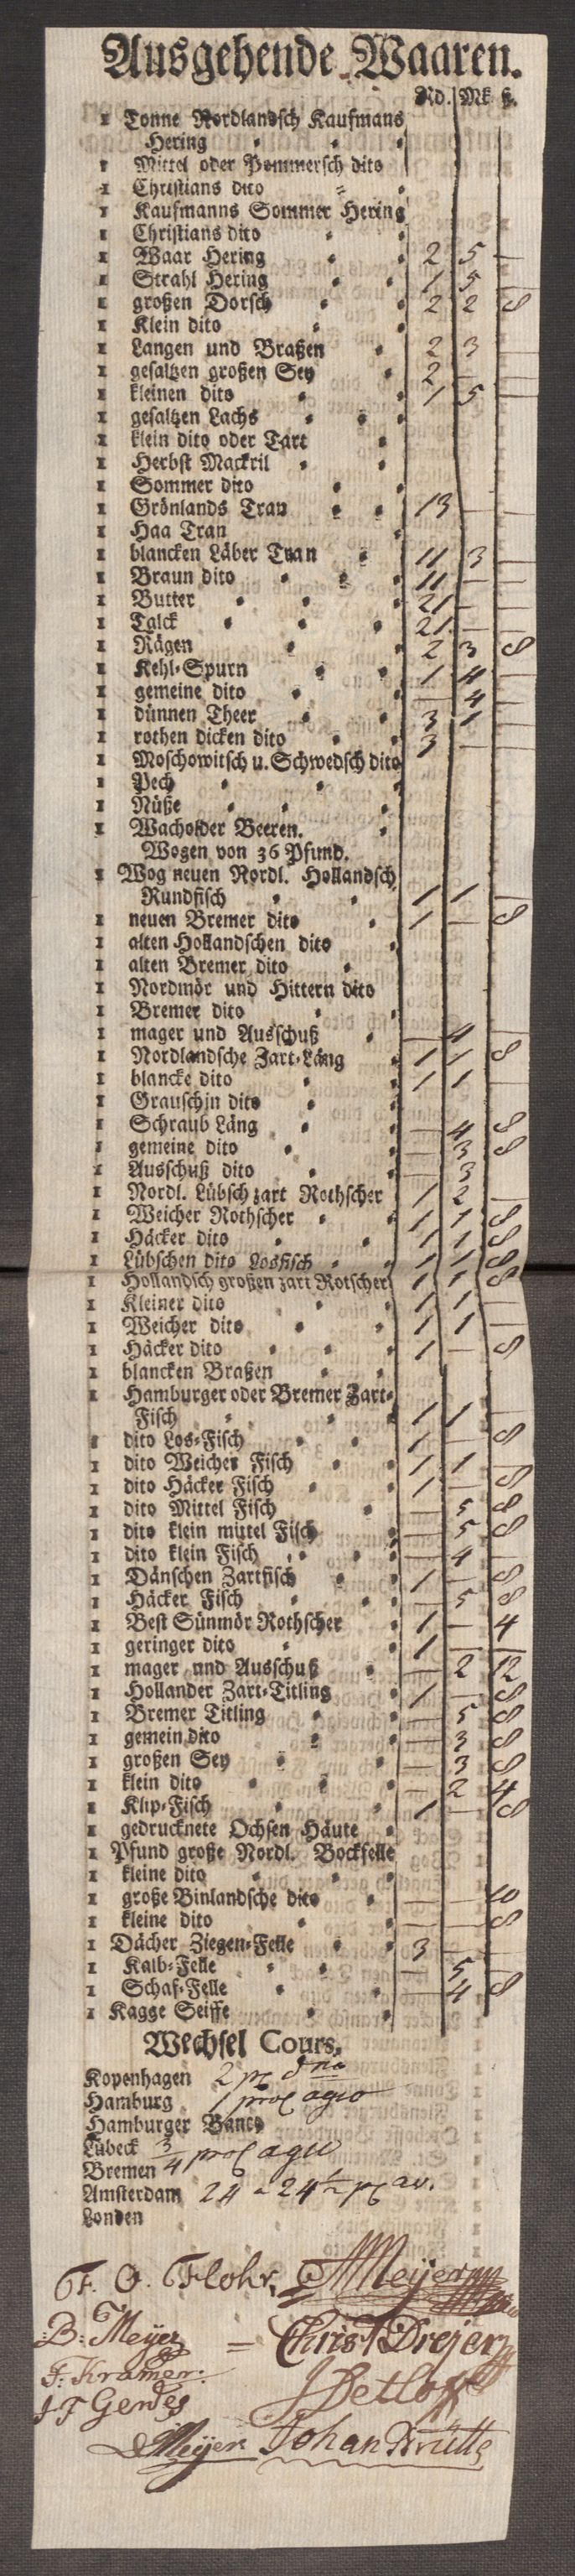 Ausgehende Waaren.
Rd. Mk ß.
1 Tonne Nordlandsch Kaufmans
Hering
1 Mittel oder Pommersch dito
1 Christians dito
1 Kaufmanns Sommer Hering
1 Christians dito
1 Waar Hering 2 5 —
1 Strahl Hering 1 5 —
1 großen Dorsch 2 2 8
1 Klein dito
1 Langen und Braßen 2 3 —
1 gesaltzen großen Sey 2 — —
1 kleinen dito 1 5 —
1 gesaltzen Lachs
1 klein dito oder Tart
1 Herbst Mackril
1 Sommer dito
1 Grönlands Tran 13 — —
1 Haa Tran
1 blancken Läber Tran 11 3 —
1 Braun dito 11 — —
1 Butter 21 — —
1 Talck 21 — —
1 Rägen 2 3 8
1 Kehl-Spurn 1 4 —
1 gemeine dito — 4 —
1 dünnen Theer 3 1 —
1 rothen dicken dito 3 — —
1 Moschowitsch u. Schwedsch dito
1 Pech
1 Nüße
1 Wacholder Beeren.
Wogen von 36 Pfund.
1 Wog neuen Nordl. Hollandsch
Rundfisch 1 1 —
1 neuen Bremer dito 1 — 8
1 alten Hollandschen dito
1 alten Bremer dito
1 Nordmör und Hittern dito
1 Bremer dito
1 mager und Ausschuß — 4 —
1 Nordlandsche Zart-Läng 1 1 8
1 blancke dito 1 1 —
1 Grauschin dito
1 Schraub Läng — 4 8
1 gemeine dito — 3 8
1 Ausschuß dito — 3 —
1 Nordl. Lübsch zart Rothscher 1 2 —
1 Weicher Rothscher 1 1 8
1 Häcker dito 1 1 8
1 Lübschen dito Losfisch 1 1 8
1 Hollandsch großen zart Rotscher 1 1 8
1 Kleiner dito 1 1 —
1 Weicher dito 1 1 —
1 Häcker dito 1 — 8
1 blancken Braßen
1 Hamburger oder Bremer Zart-
Fisch 1 1 —
1 dito Los-Fisch 1 — 8
1 dito Weicher Fisch 1 1 —
1 dito Häcker Fisch 1 — 8
1 dito Mittel Fisch — 5 8
1 dito klein mittel Fisch — 5 8
1 dito klein Fisch — 4 —
1 Dänschen Zartfisch 1 — 8
1 Häcker Fisch — 5 8
1 Best Sünmör Rothscher 1 — 4
1 geringer dito 1 — —
1 mager und Ausschuß — 2 12
1 Hollander Zart-Titling 1 — 8
1 Bremer Titling — 5 8
1 gemein dito — 3 8
1 großen Sey — 3 8
1 klein dito — 2 4
1 Klip-Fisch 1 — 8
1 gedrucknete Ochsen Häute
1 Pfund große Nordl. Bockfelle
1 kleine dito
1 große Binlandsche dito — — 10
1 kleine dito — — 8
1 Dächer Ziegen-Felle 3 — —
1 Kalb-Felle — 5 —
1 Schaf-Felle — 4 8
1 Kagge Seiffe
Wechsel Cours.
Kopenhagen 2 pc dno
Hamburg 1 proc agio
Hamburger Banco
Lübeck
Bremen 3/4 proc agio
Amsterdam 24 a 24 1/2 pc av.
Londen
F. O. Flohr. Meijer
B: Meyer = Christ Drejer
F: Kramer: J Detlof
J F Gerdes
D Meijer Johan Krütte